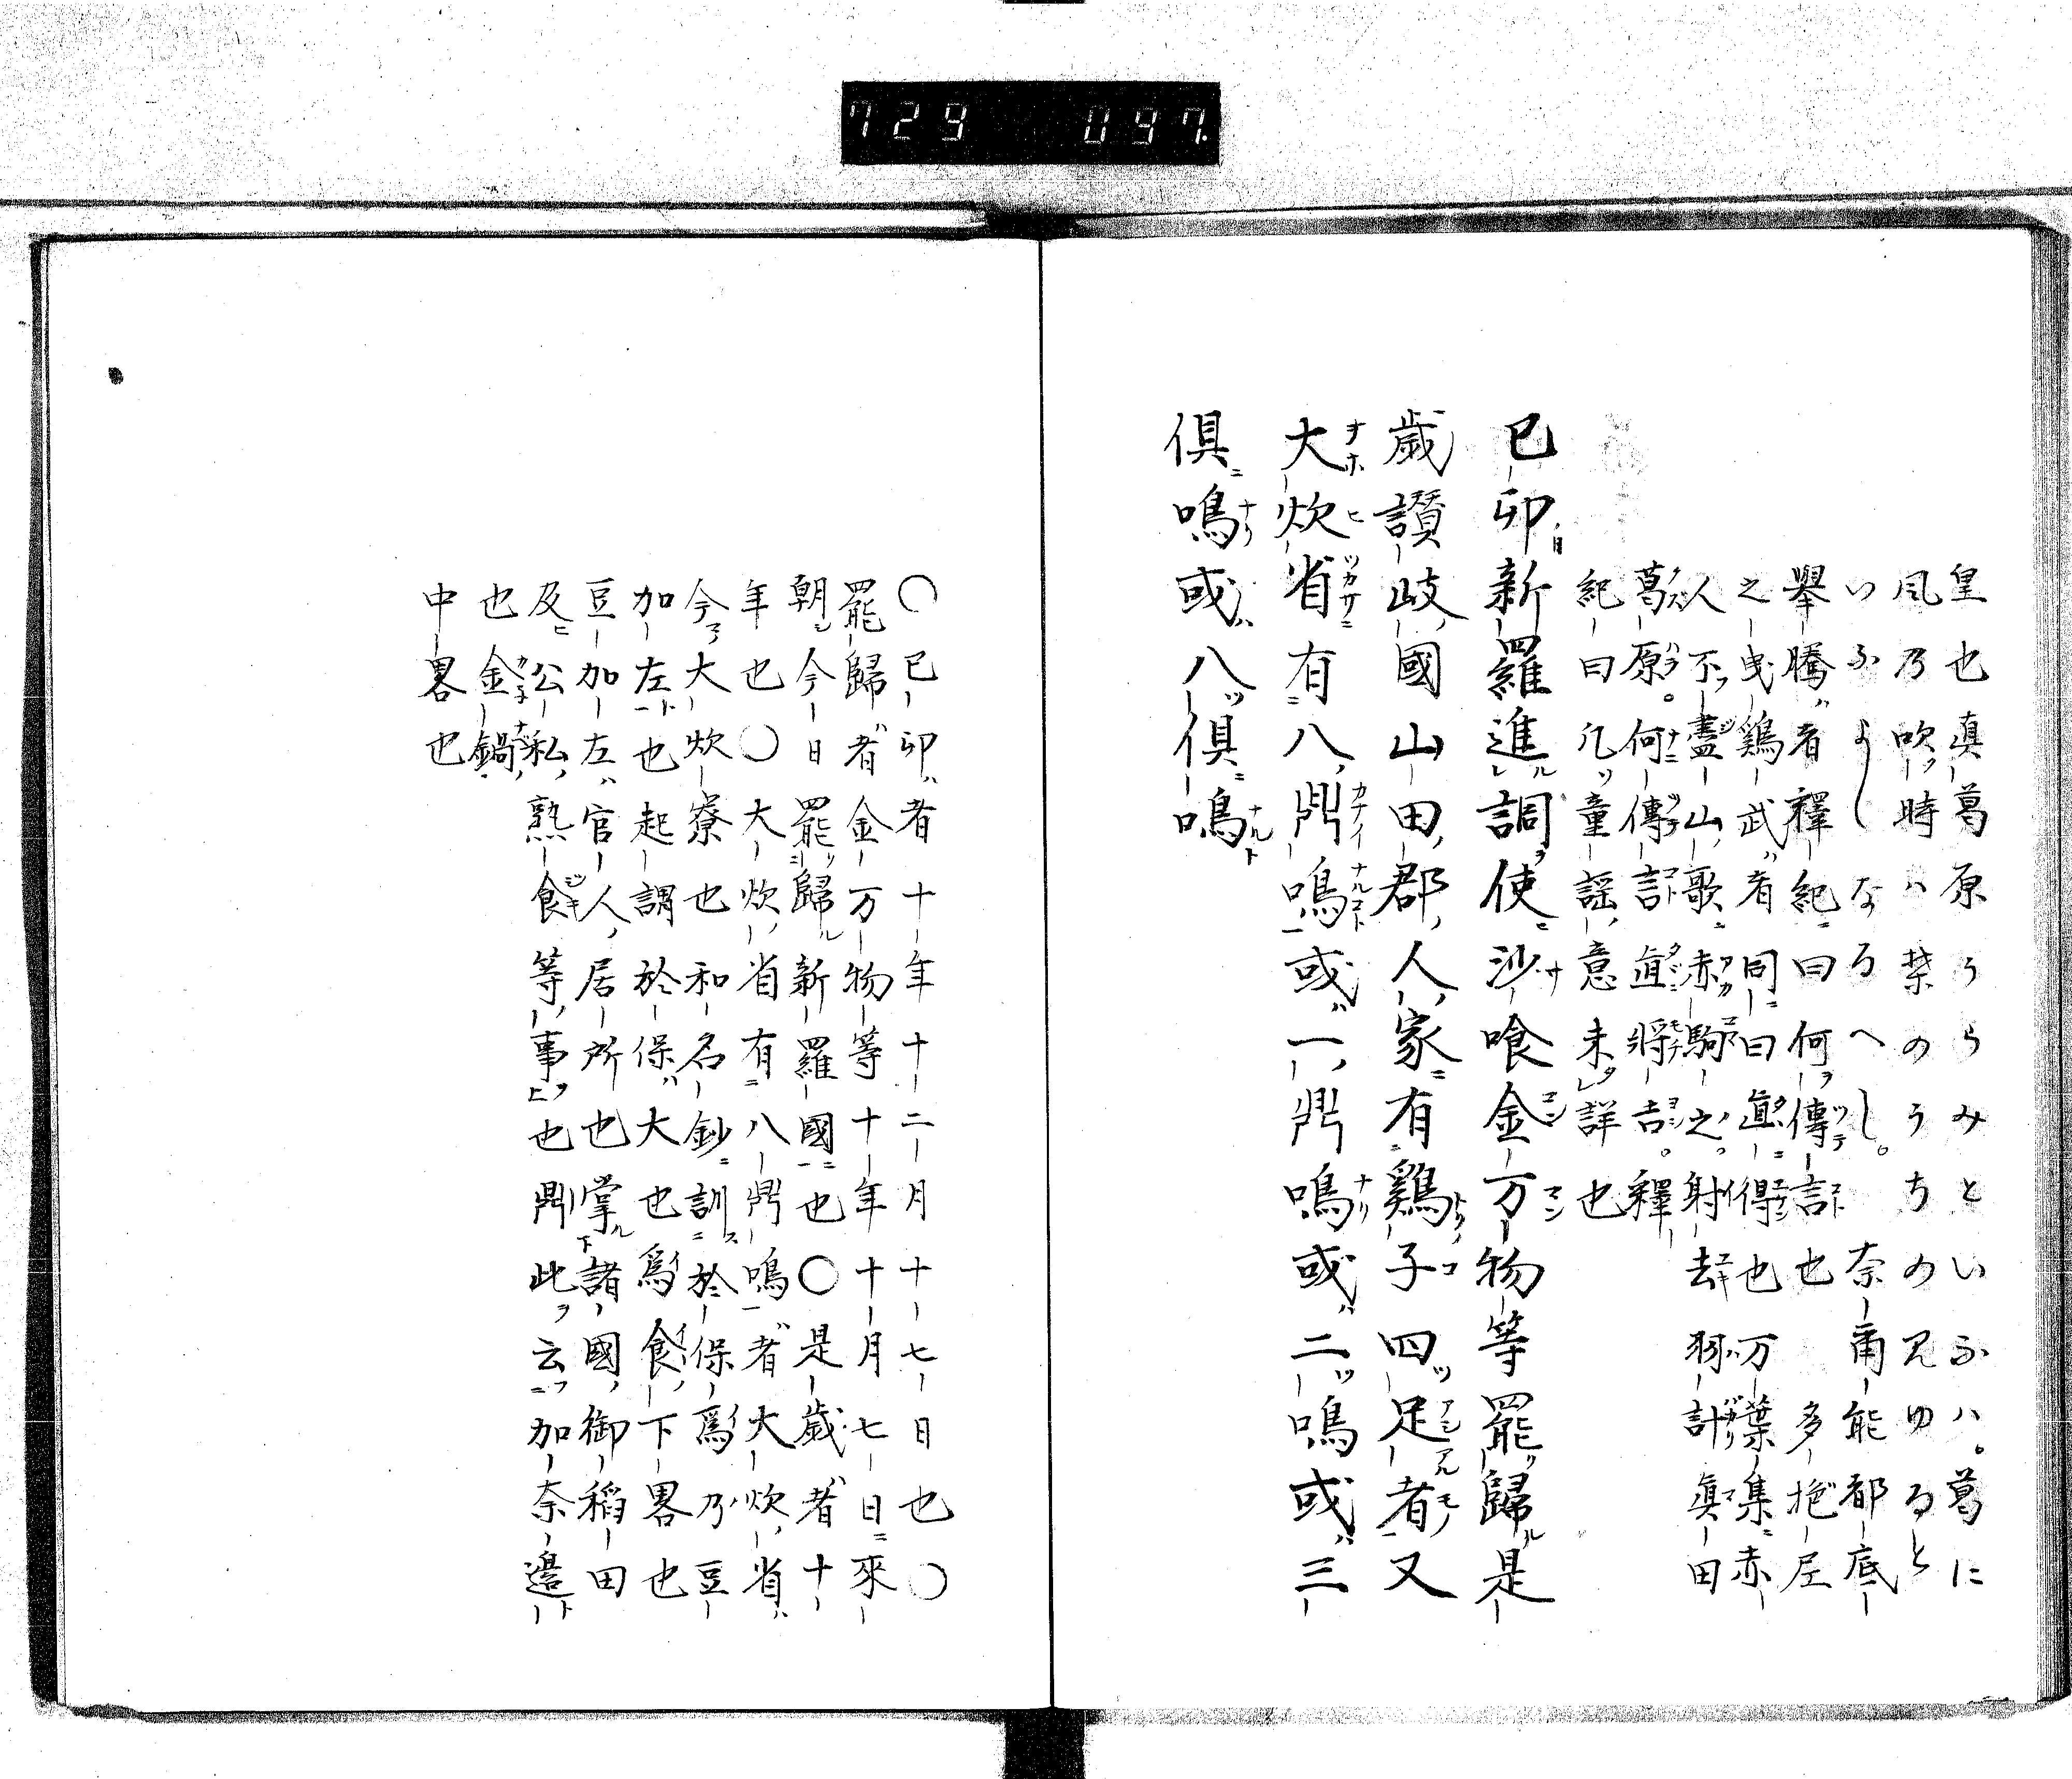 729 097.
皇也真葛原うらみといふハ。葛に
風乃吹ッ時ハ葉のうちの見ゆると
いふよしなるへし。奈甭能都底
擧騰ハ者釋紀ニ曰何ヲ傳言也 多拖尼
之曳鶏武ハ者同ニ曰直ニ得也万葉集ニ赤
人不盡山ノ歌ニ赤駒之。射去羽計真田
葛原。何傳言直將吉。釋
紀曰凡ッ童謡ノ意未詳也
已卯新羅進調使沙喰金万物等罷歸是
歲讃岐國山田郡人家有鷄子四足者又
大炊省有八鼎鳴或一鼎鳴或二鳴或三
俱鳴或八俱鳴
〇已卯ハ者十年十二月十七日也〇
罷歸者金万物等十年十月七日ニ來
朝シ今日罷歸新羅國ニ也〇是歲者十
年也〇大炊省有八鼎鳴者大炊省ハ
今ノ大炊寮也和名鈔ニ訓於保爲乃豆
加左ト也起謂於保ハ大也爲食ノ下畧也
豆加左ハ官人ノ居所也掌諸國ノ御稻田
及ヒ公私ノ熟食等ノ事ヲ也鼎此ヲ云フ加奈邊ト
也金鍋ノ
中畧也